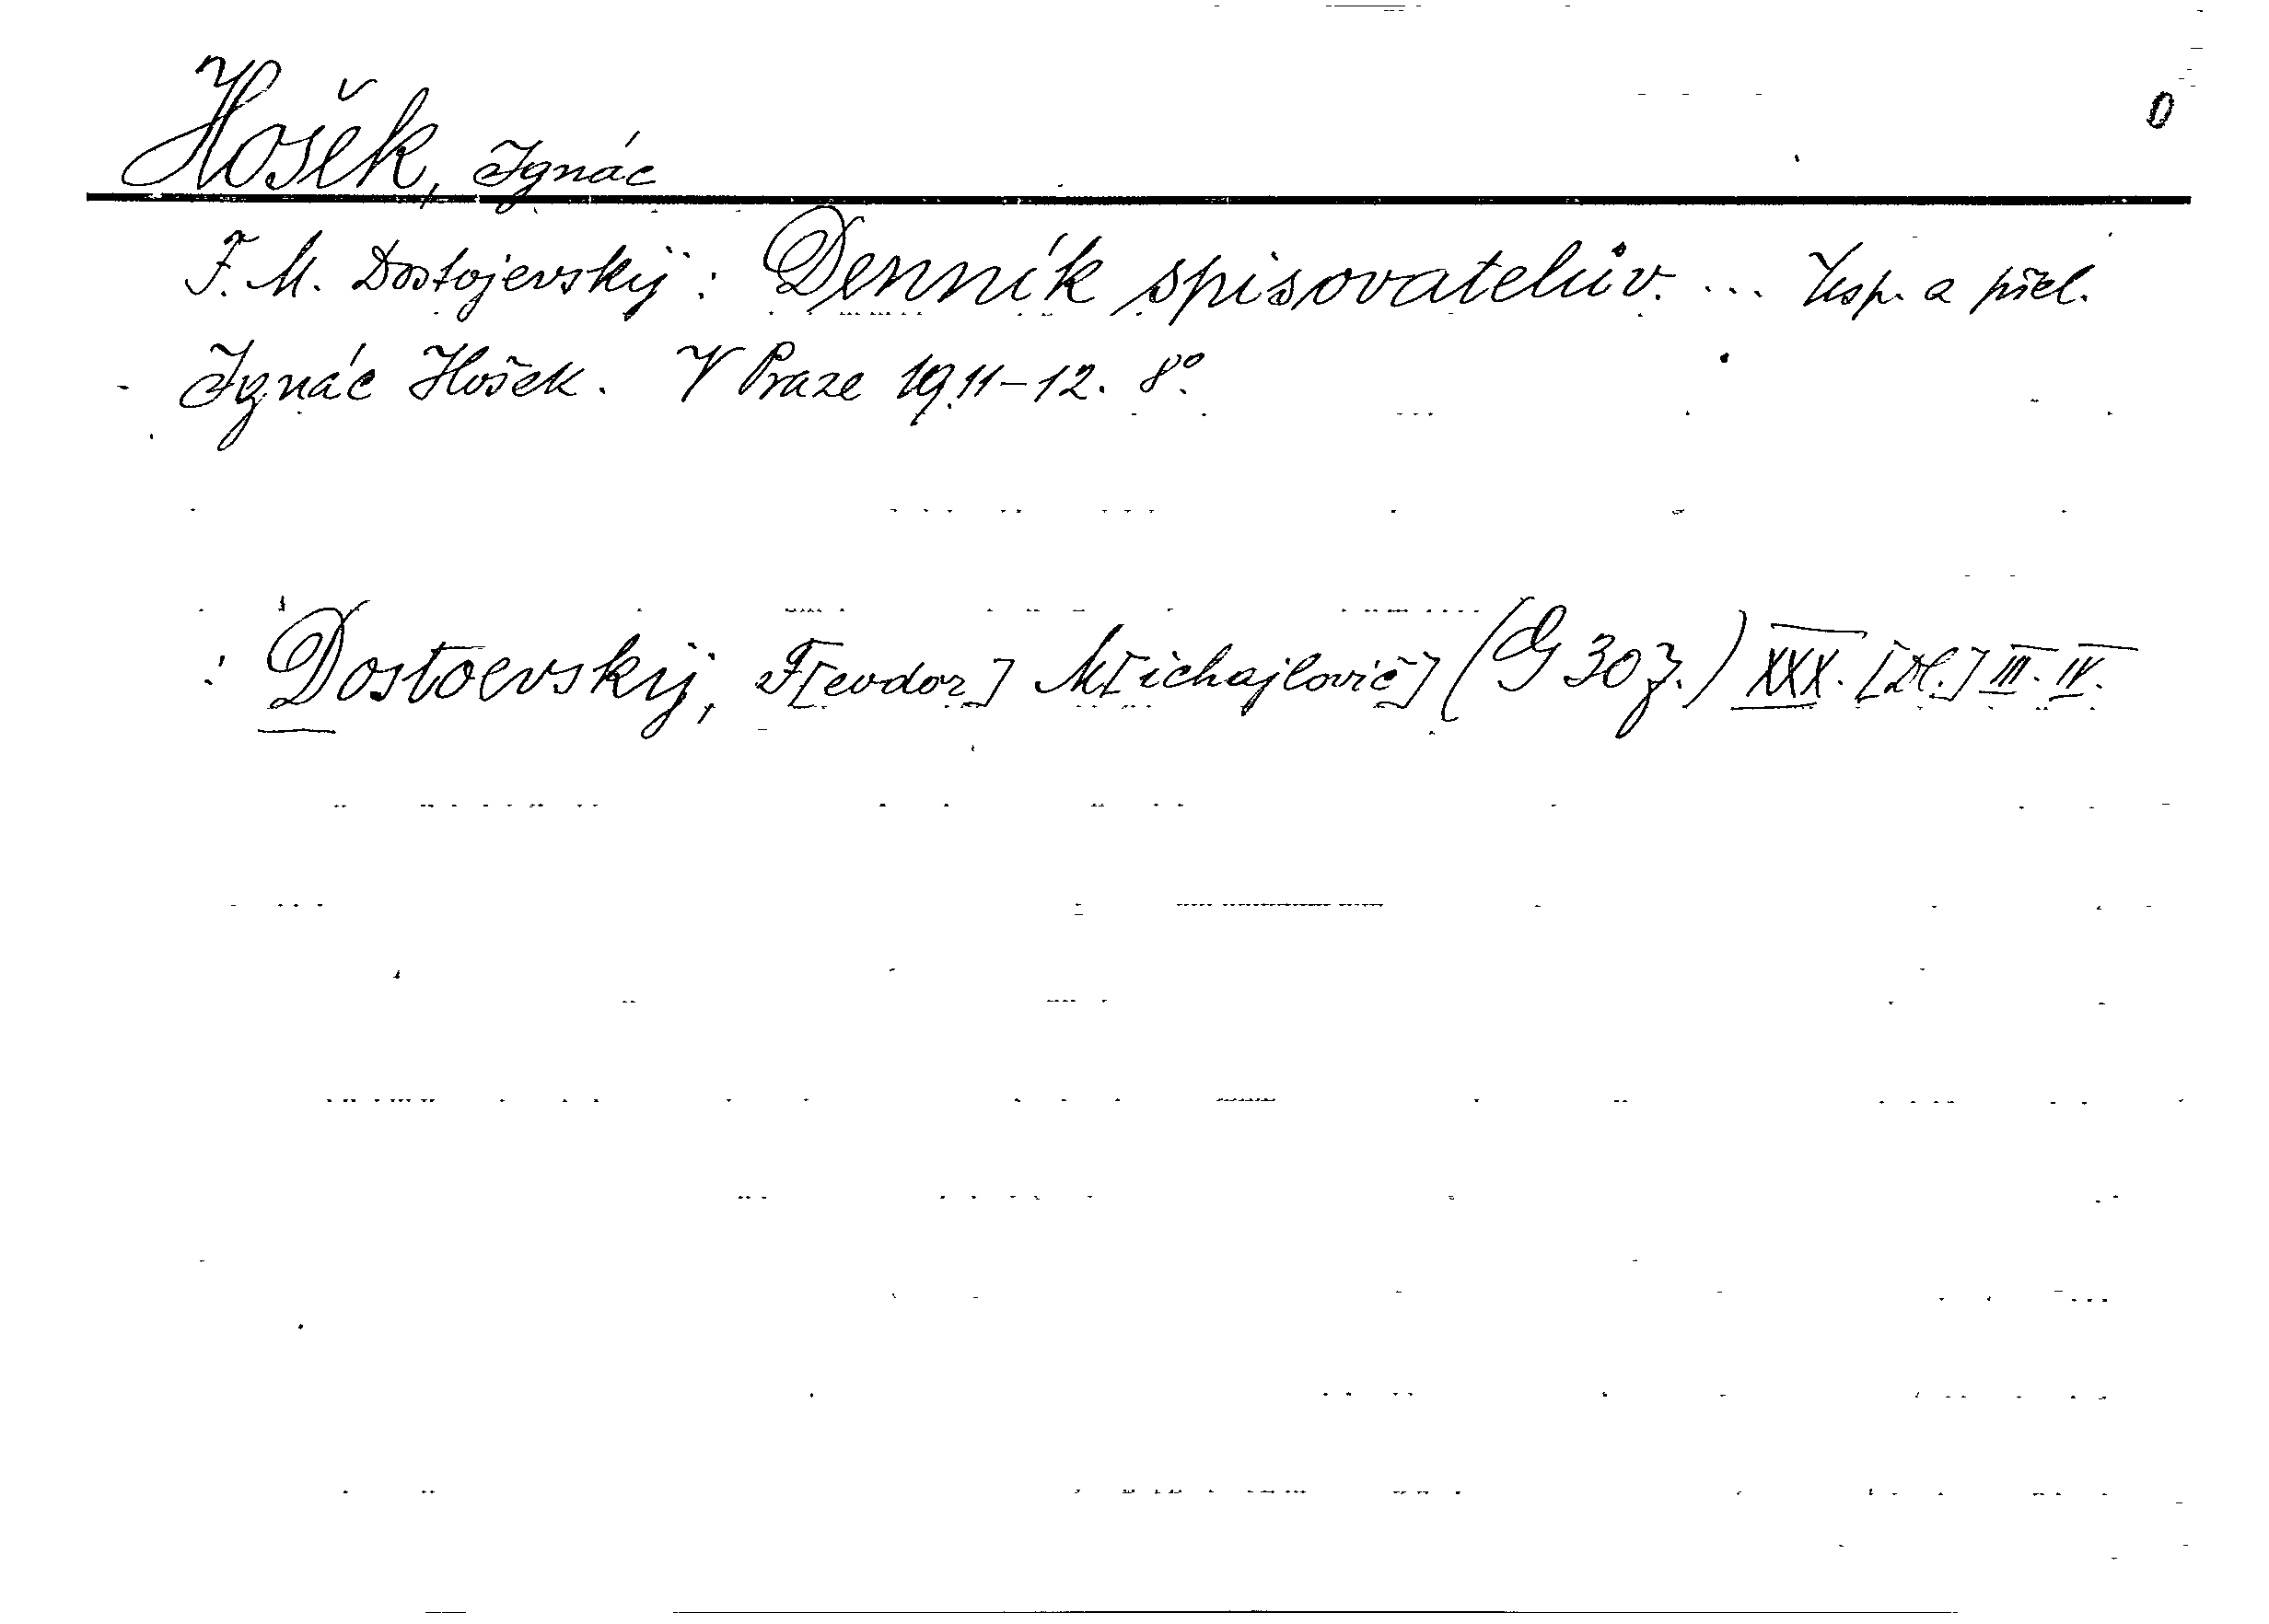 0
Hošek, Ignác
F. M. Dostojevskij: Denník spisovatelův. ... Usp. a přel.
Ignác Hošek. V Praze 1911-12. 8°.
: Dostoevskij, F[eodor] M[ichajlovič] (G 30 z.) XXX. [Dl.] III. IV.